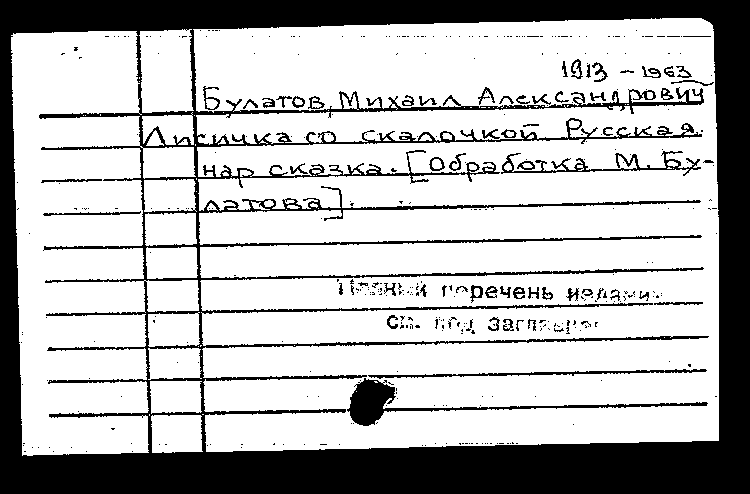 1913 – 1963
Булатов, Михаил Александрович
Лисичка со скалочкой Русская
нар сказка. [Обработка М. Бу-
латова].
Полный перечень издании
см. под заглавием